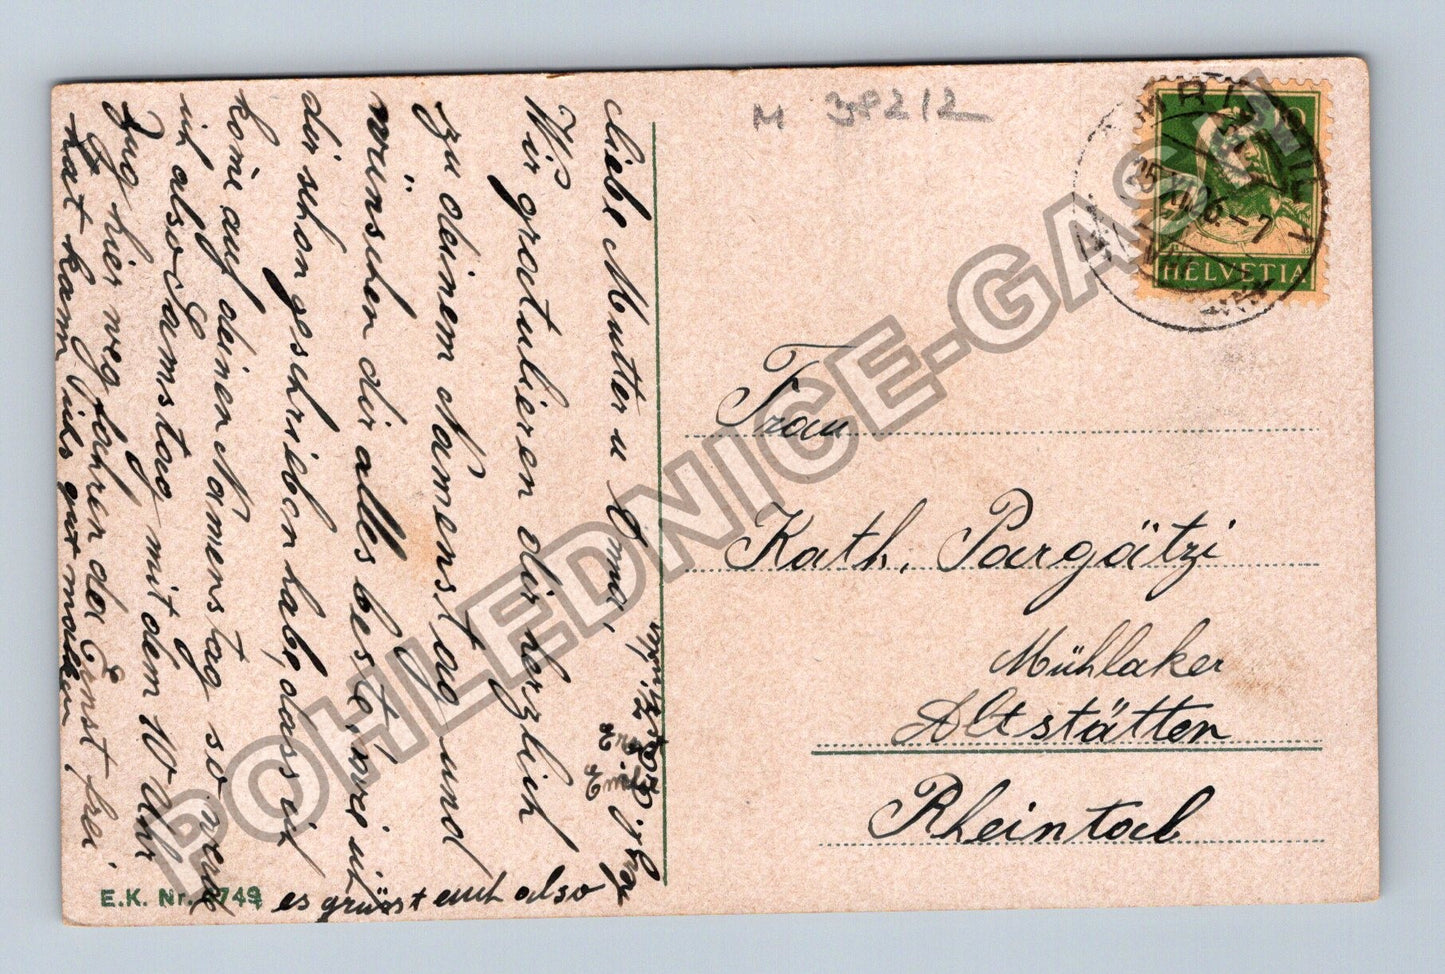 M 38212
HELVETIA
Frau
Kath. Pargätzi
Mühlaker
Altstätten
Rheintal
Liebe Mutter u Emma,
Wir gratulieren dir herzlich
zu deinem Namenstag und
wünschen dir alles beste, wie ich
dir schon geschrieben habe, dass ich
kome auf deinen Namenstag so werde
ich also Samstag mit dem 10 Uhr
Zug hier weg fahren da Ernst frei
hat kann ichs gut machen
es grüsst euch also
E.K. Nr. 4749
POHLEDNICE-GASCH